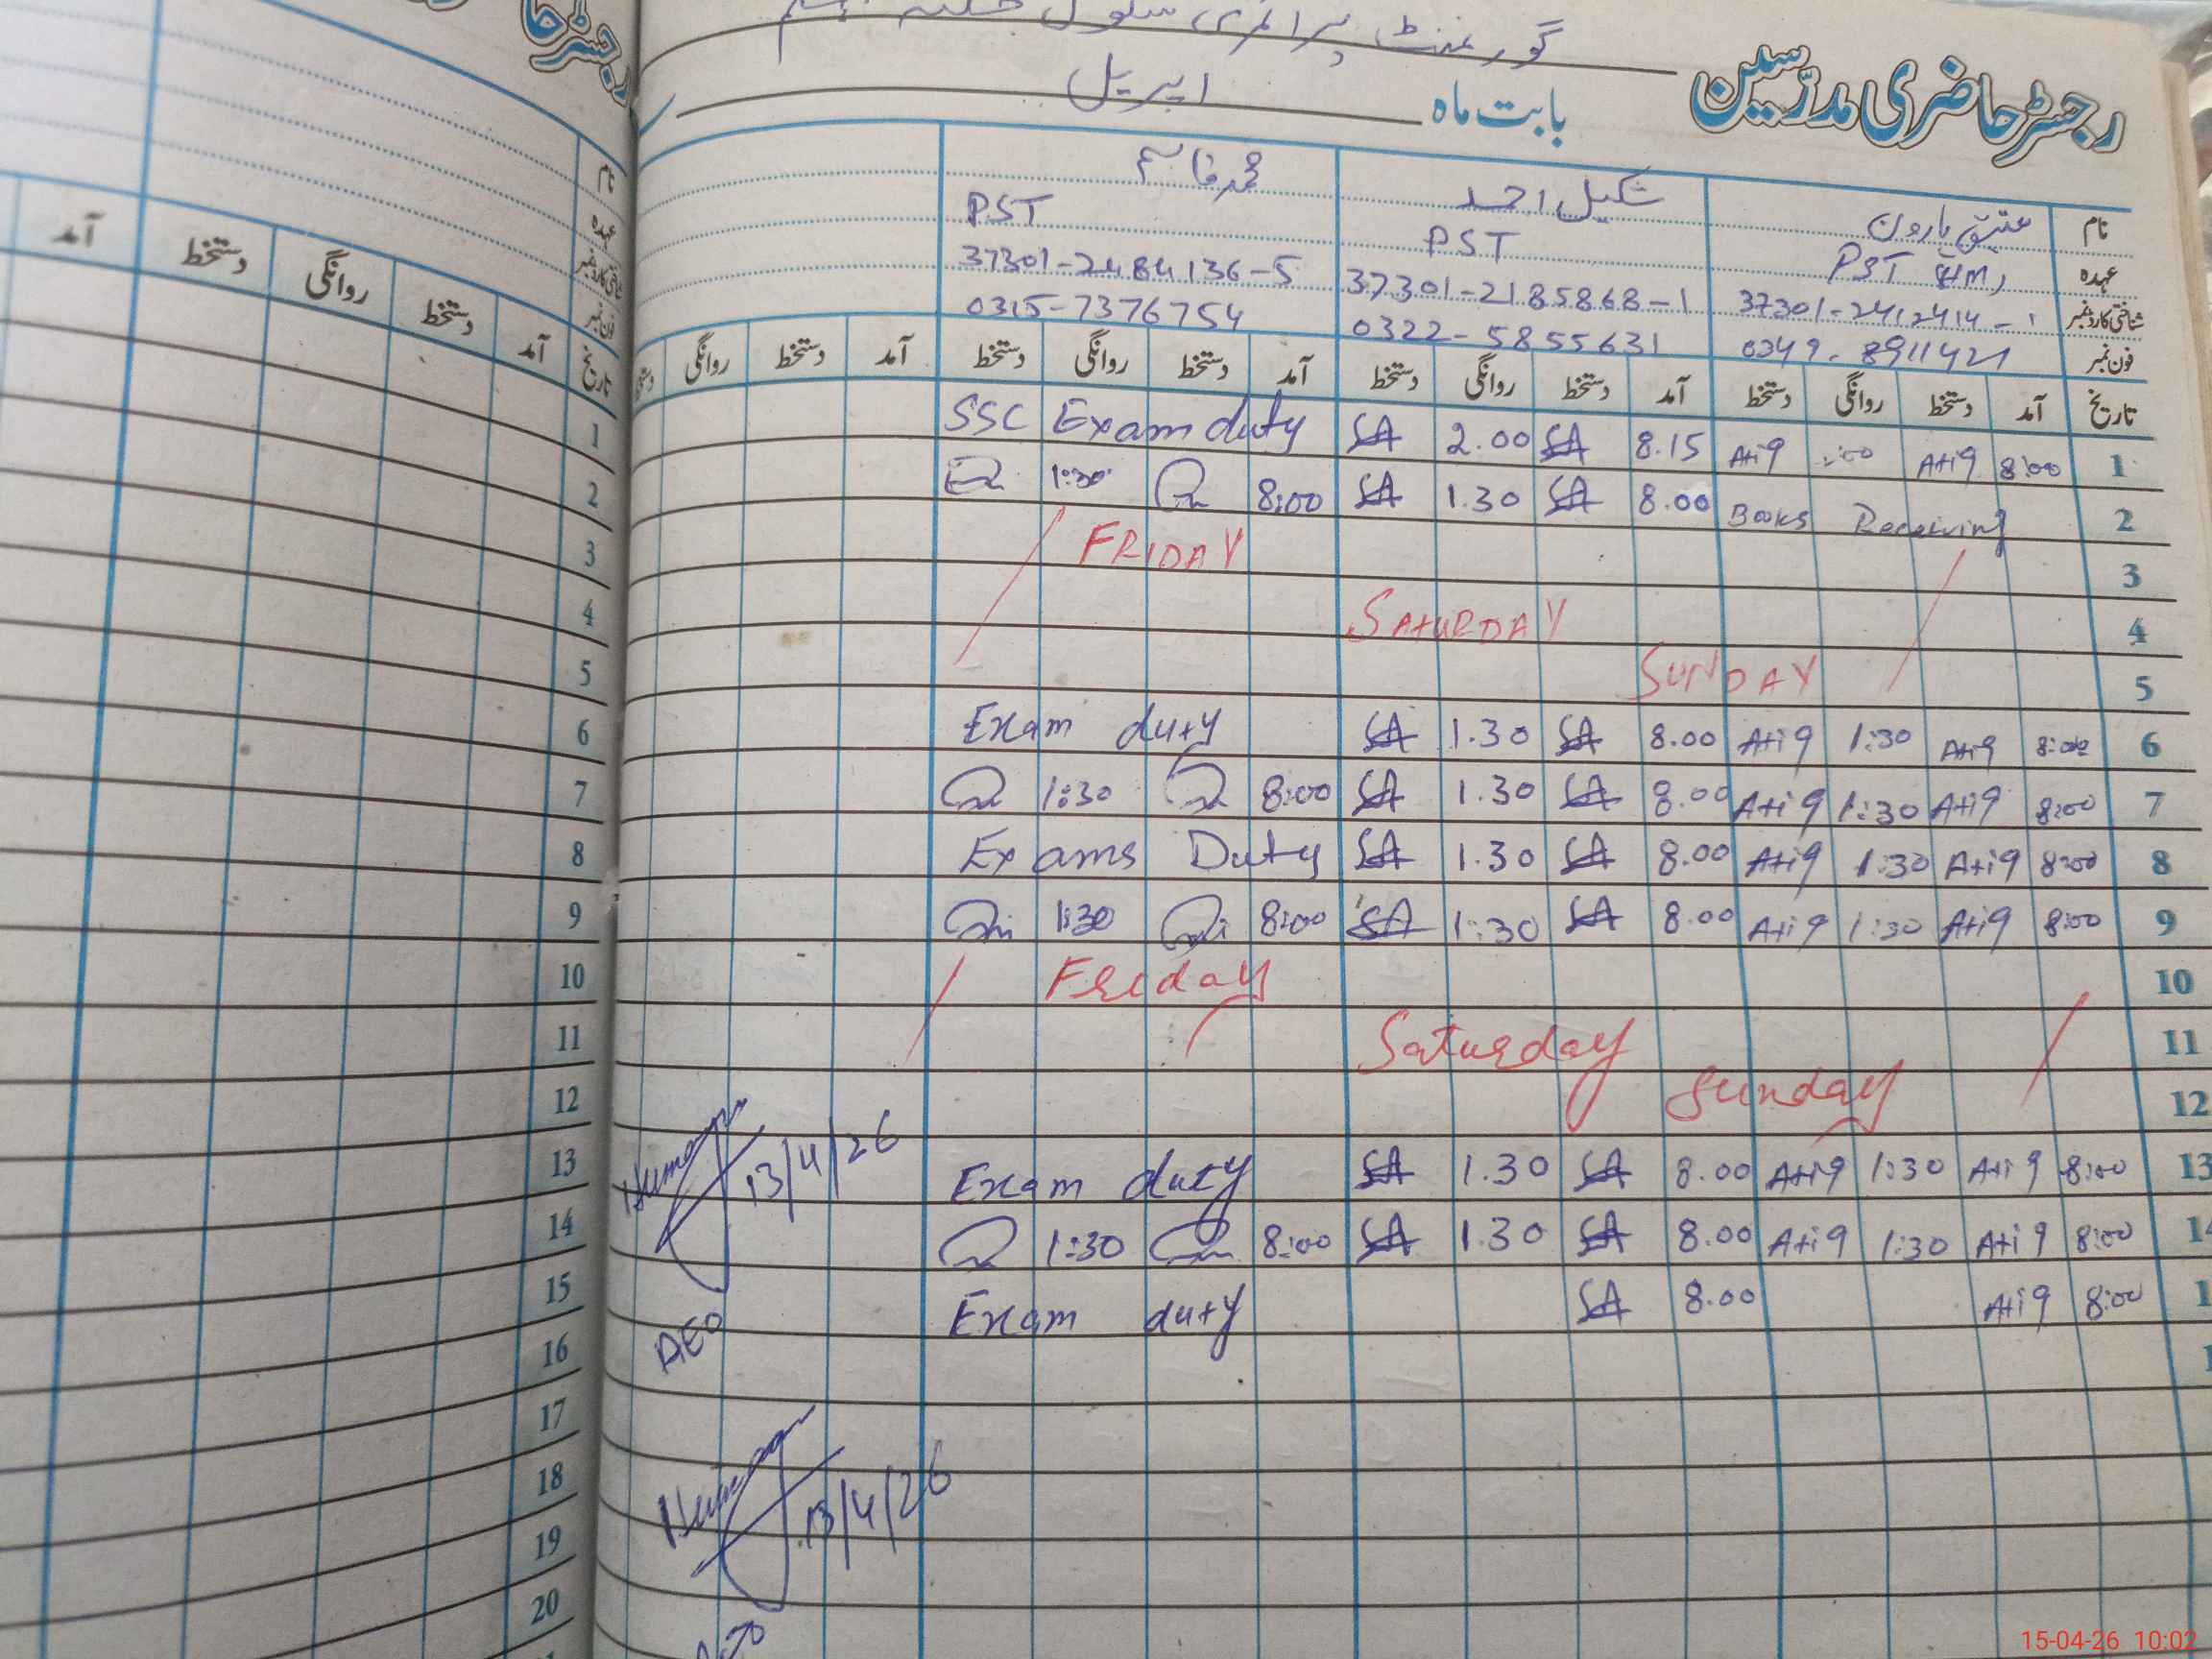 رجسٹر حاضری مدرسین
گورنمنٹ پرائمری سکول
بابت ماہ اپریل
نام عتیق ہارون شکیل احمد محمد قاسم
عہدہ PST (HM) PST PST
شناختی کارڈ نمبر 37301-2185868-1 37301-2484136-5
فون نمبر 0322-5855631 0315-7376754
تاریخ آمد دستخط روانگی دستخط آمد دستخط روانگی دستخط آمد دستخط روانگی دستخط آمد دستخط روانگی
1 8:00 Atiq Atiq 8.15 SA 2.00 SA SSC Exam duty
2 Books Receiving 8.00 SA 1.30 SA 8:00 1:30
3 FRIDAY
4 SATURDAY
5 SUNDAY
6 8:00 Atiq 1:30 Atiq 8.00 SA 1.30 SA Exam duty
7 8:00 Atiq 1:30 Atiq 8.00 SA 1.30 SA 8:00 1:30
8 8:00 Atiq 1:30 Atiq 8.00 SA 1.30 SA Exams Duty
9 8:00 Atiq 1:30 Atiq 8.00 SA 1:30 SA 8:00 1:30
10 Friday
11 Saturday
12 Sunday
13 8:00 Atiq 1:30 Atiq 8.00 SA 1.30 SA Exam duty 13/4/26
14 8:00 Atiq 1:30 Atiq 8.00 SA 1.30 SA 8:00 1:30
8:00 Atiq 8.00 SA Exam duty
AEO
13/4/26
نام
عہدہ
شناختی کارڈ نمبر
فون نمبر
تاریخ آمد دستخط روانگی دستخط آمد
1
2
3
4
5
6
7
8
9
10
11
12
13
14
15
16
17
18
19
20
15-04-26 10:02